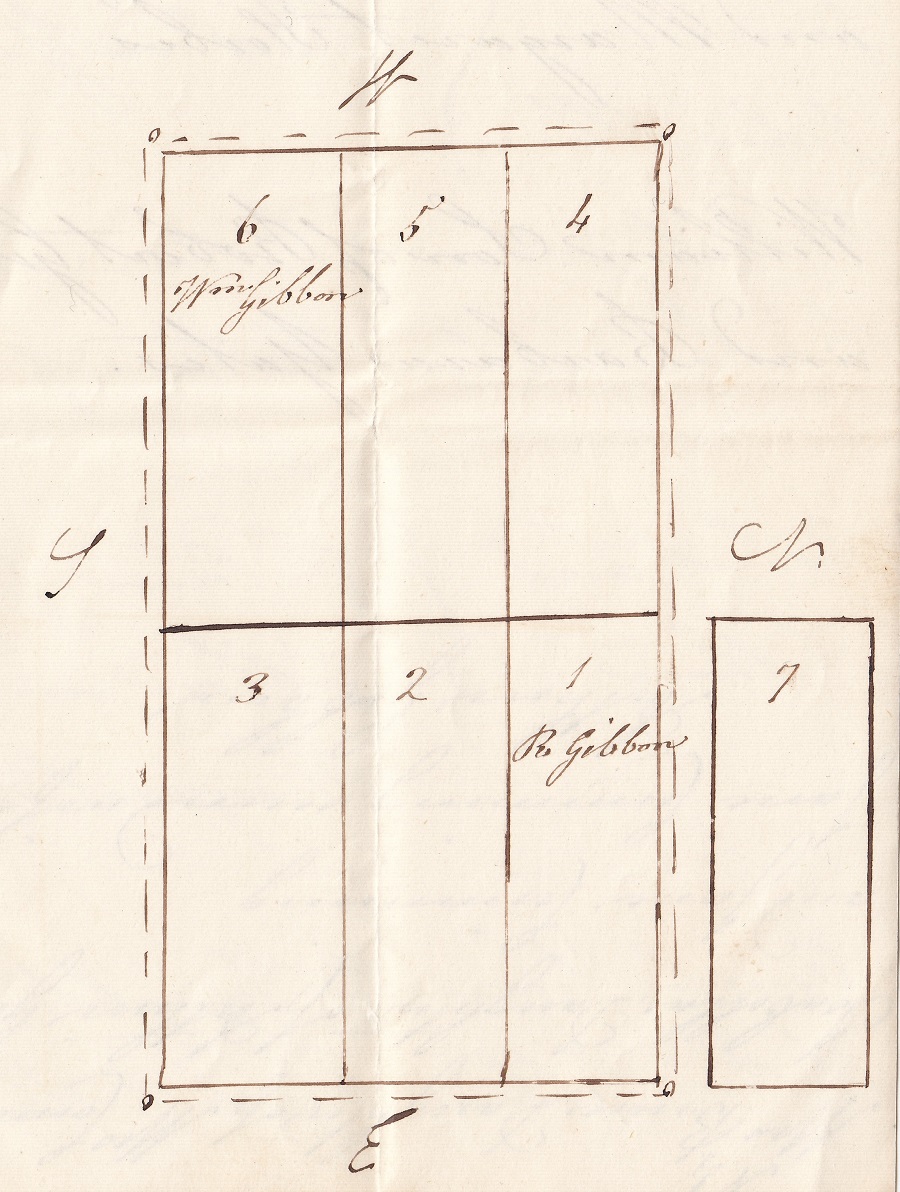 W
6 5 4
Wm Gibbon
S
N
3 2 1 7
R Gibbon
E